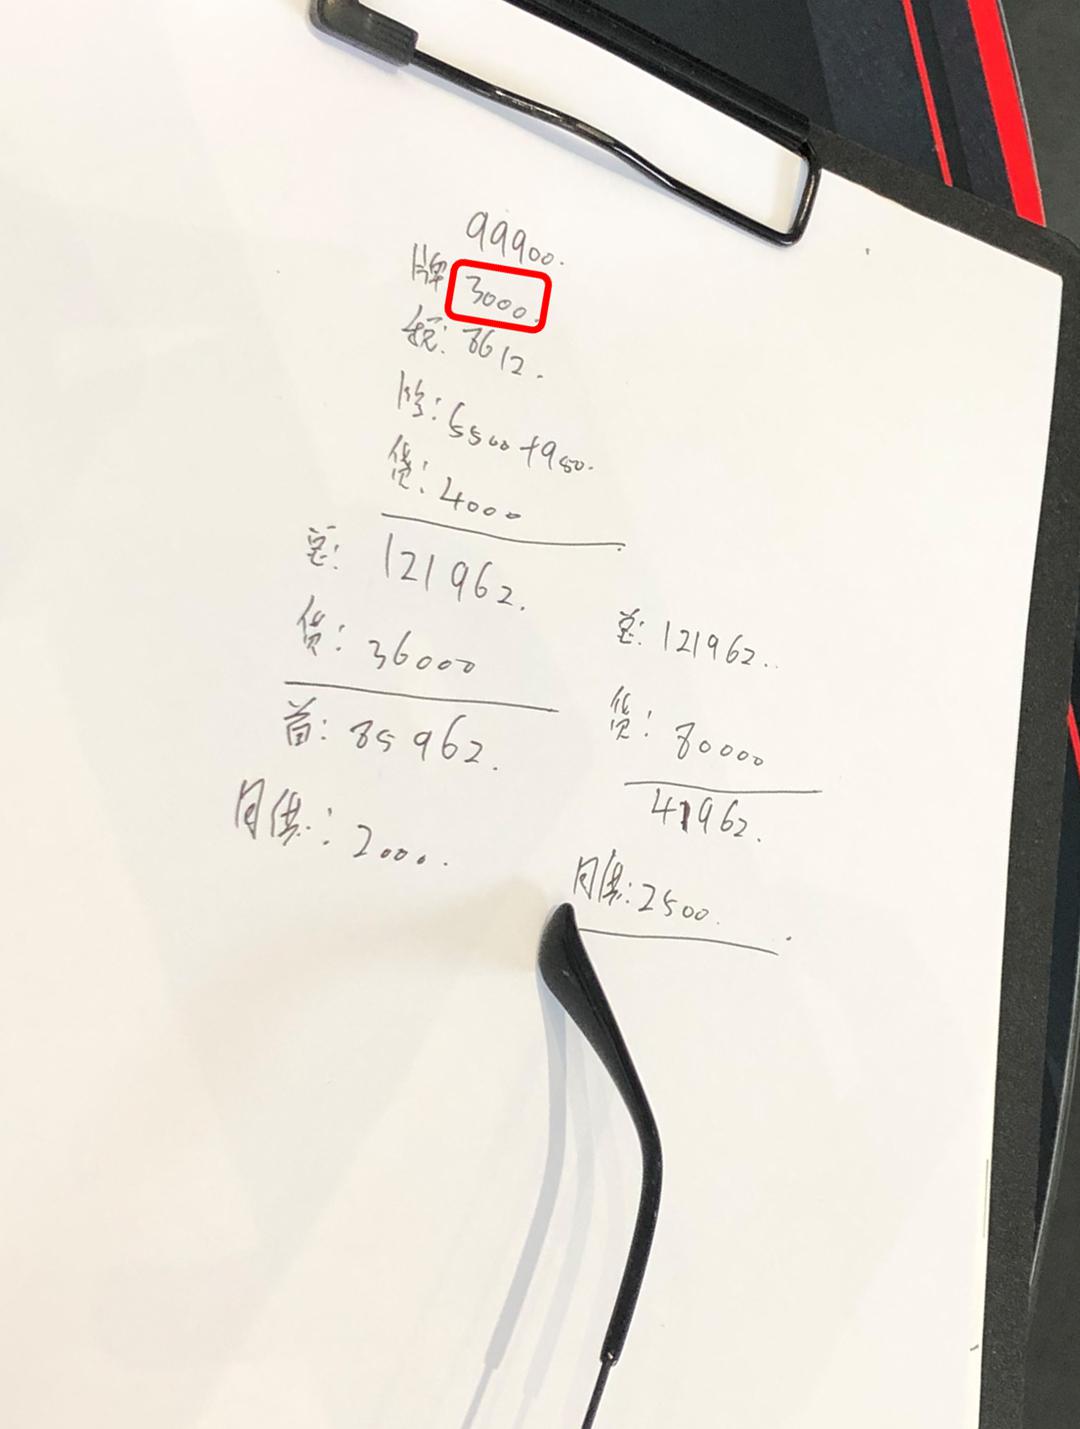 99900.
牌 3000.
税: 8612.
险: 5500+950.
贷: 4000
总: 121962.
贷: 36000
首: 85962.
月供: 2000.
总: 121962.
贷: 80000
41962.
月供: 2500.